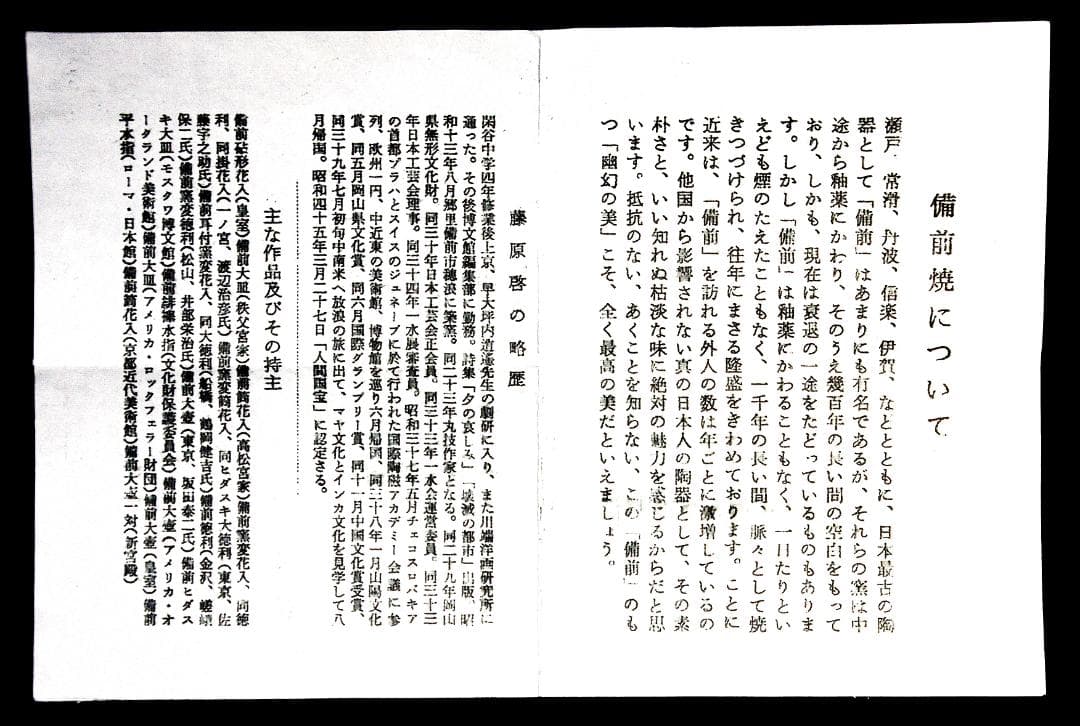 備前焼について
瀬戸、常滑、丹波、信楽、伊賀、などとともに、日本最古の陶
器として「備前」はあまりにも有名であるが、それらの窯は中
途から釉薬にかわり、そのうえ幾百年の長い間の空白をもって
おり、しかも、現在は衰退の一途をたどっているものもありま
す。しかし「備前」は釉薬にかわることもなく、一日たりとい
えども煙のたえたこともなく、一千年の長い間、脈々として焼
きつづけられ、往年にまさる隆盛をきわめております。ことに
近来は、「備前」を訪れる外人の数は年ごとに激増しているの
です。他国から影響されない真の日本人の陶器として、その素
朴さと、いい知れぬ枯淡な味に絶対の魅力を感じるからだと思
います。抵抗のない、あくことを知らない、この「備前」のも
つ「幽幻の美」こそ、全く最高の美だといえましょう。
藤原啓の略歴
閑谷中学四年修業後上京、早大坪内逍遙先生の劇研に入り、また川端洋画研究所に
通った。その後博文館編集部に勤務。詩集「夕の哀しみ」「壊滅の都市」出版、昭
和十三年八月郷里備前市穂浪に築窯。同二十三年丸技作家となる。同二十九年岡山
県無形文化財。同三十年日本工芸会正会員。同三十三年一水会運営委員。同三十三
年日本工芸会理事。同三十四年一水展審査員。昭和三十七年五月チェコスロバキア
の首都プラハとスイスのジュネーブに於て行われた国際陶磁アカデミー会議に参
列、欧州一円、中近東の美術館、博物館を巡り六月帰国、同三十八年一月山陽文化
賞、同五月岡山県文化賞、同六月国際グランプリー賞、同十一月中国文化賞受賞、
同三十九年七月初旬中南米へ放浪の旅に出て、マヤ文化とインカ文化を見学して八
月帰国。昭和四十五年三月二十七日「人間国宝」に認定さる。
主な作品及びその持主
備前砧形花入(皇室)備前大皿(秩父宮家)備前筒花入(高松宮家)備前窯変花入、同徳
利、同掛花入(一ノ宮、渡辺治彦氏)備前窯変筒花入、同ヒダスキ大徳利(東京、佐
藤宇之助氏)備前耳付窯変花入、同大徳利(船橋、鶴岡健吉氏)備前徳利(金沢、嵯峨
保二氏)備前窯変徳利(松山、井部栄治氏)備前大壺(東京、坂田泰二氏)備前ヒダス
キ大皿(モスクワ博文館)備前緋襷水指(文化財保護委員会)備前大壺(アメリカ・オ
ークランド美術館)備前大皿(アメリカ・ロックフェラー財団)備前大壺(皇室)備前
平水指(ローマ・日本館)備前筒花入(京都近代美術館)備前大壺一対(新宮殿)